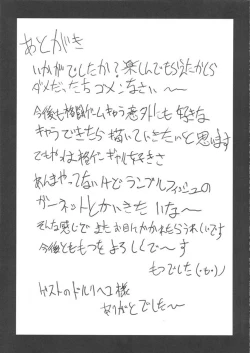 あとがき
いかがでしたか？楽しんでもらえたかしら
ダメだったらゴメンなさい〜
今後も格闘ゲームキャラ意外にも好きな
キャラできたら描いていきたいと思います
でもやっぱ格ゲーギャル好きさ
あんまやってないけどランブルフィッシュの
ガーネットとかかきたいな〜
そんな感じでまたお目にかかれたらうれしいです
今後とももつをよろしくで〜す
もつでした(・ω・)ノ
ゲストのドルリヘコ様
ありがとでした〜